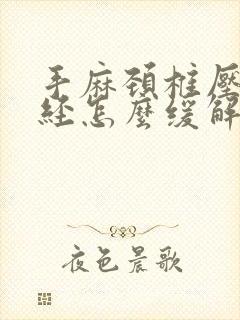 手麻頸椎壓
經怎麼緩解
夜色晨歌